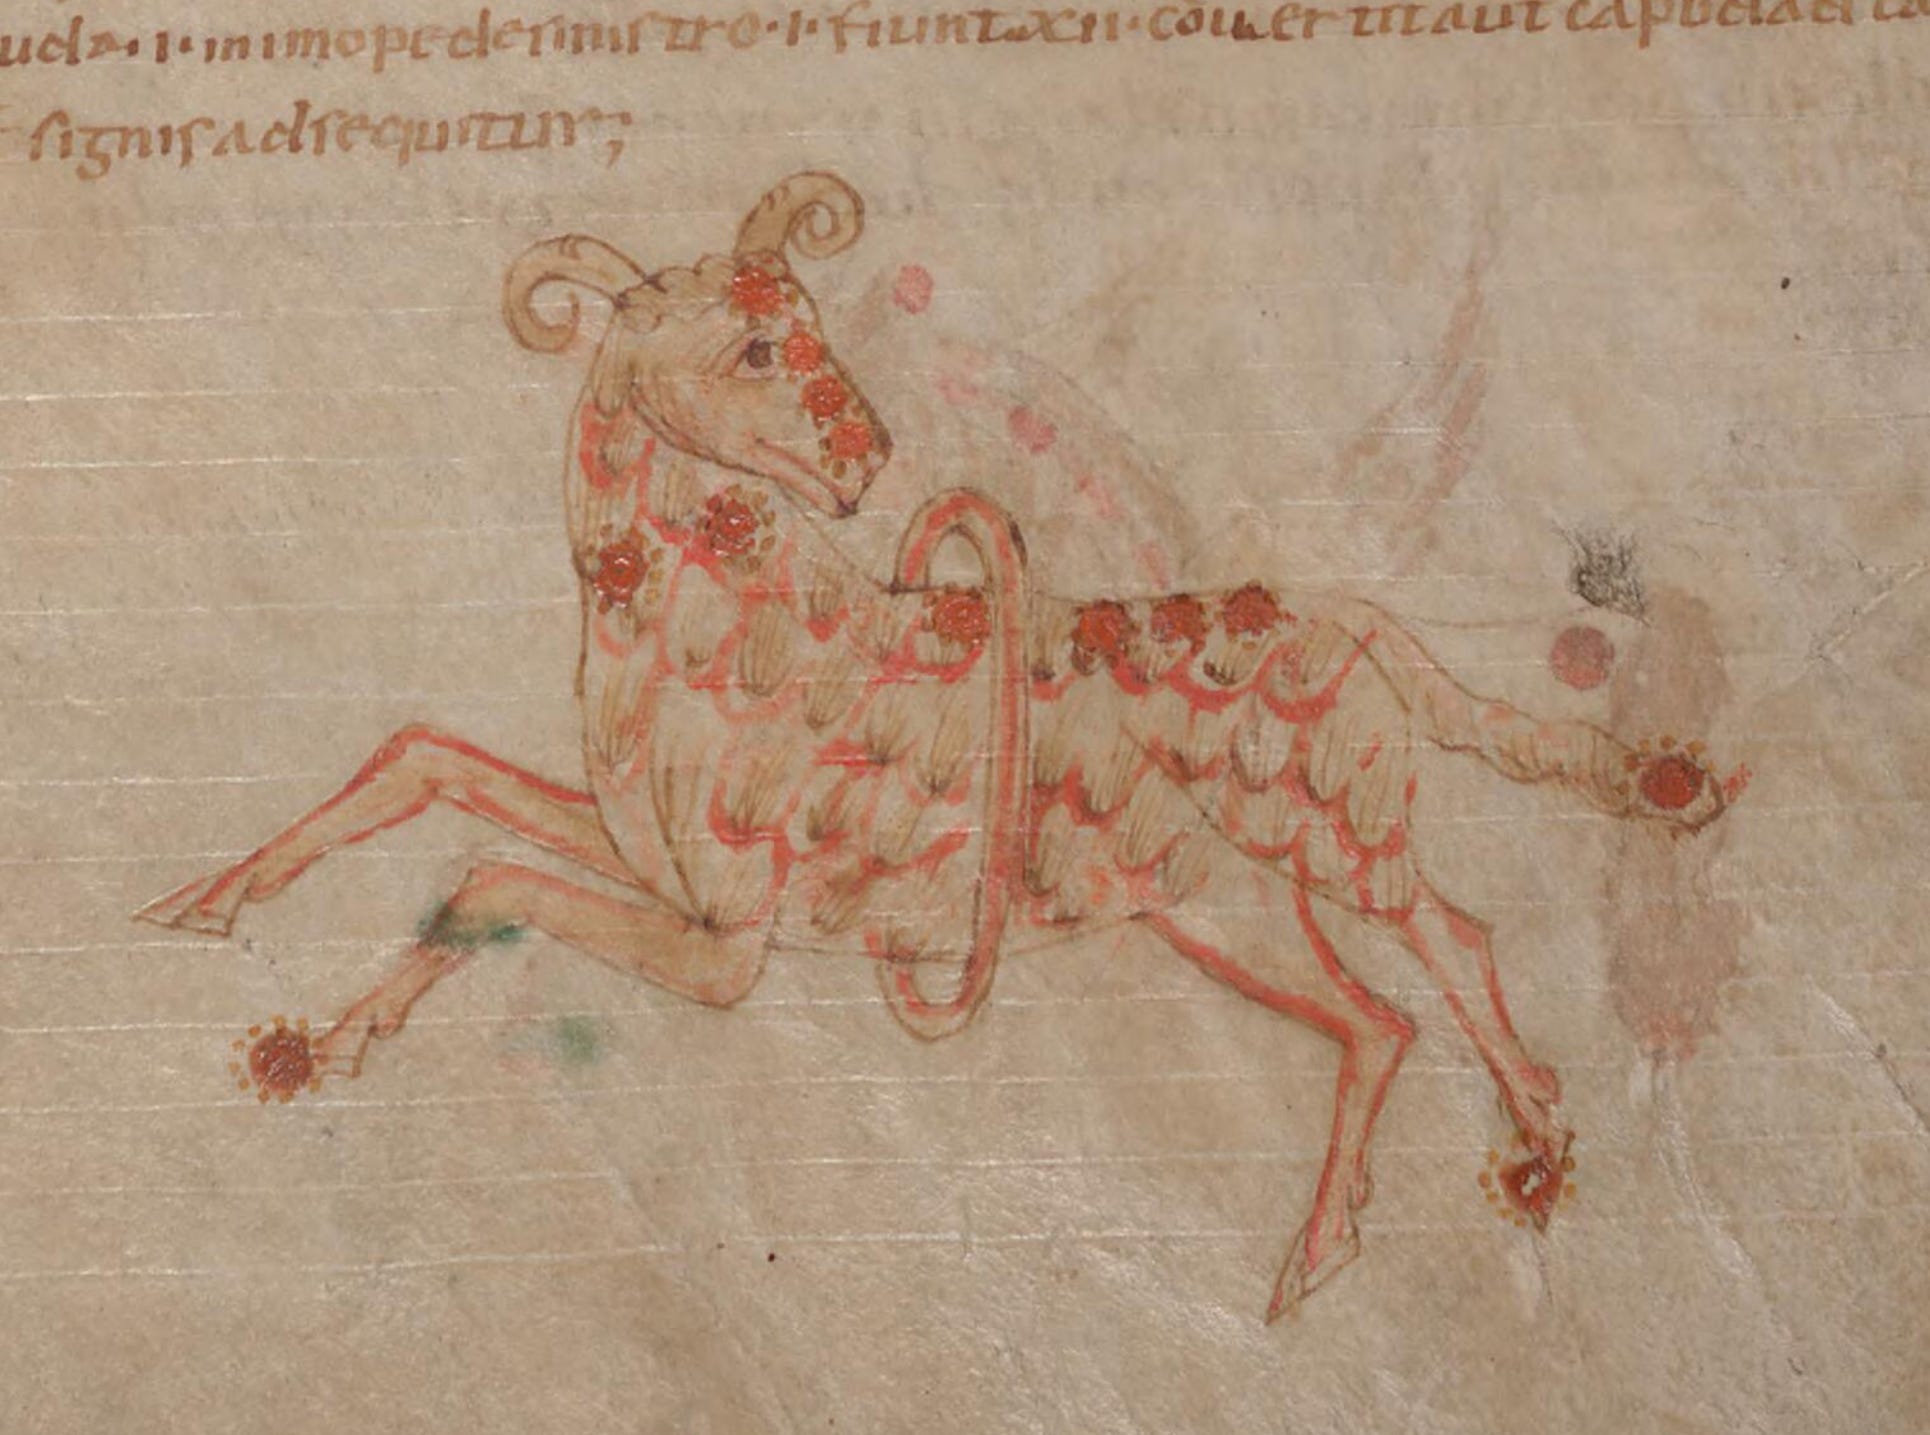 uda·i·inimopedesinistro·i·fiuntxii·couertitautcaputadca
signisadsequitur;